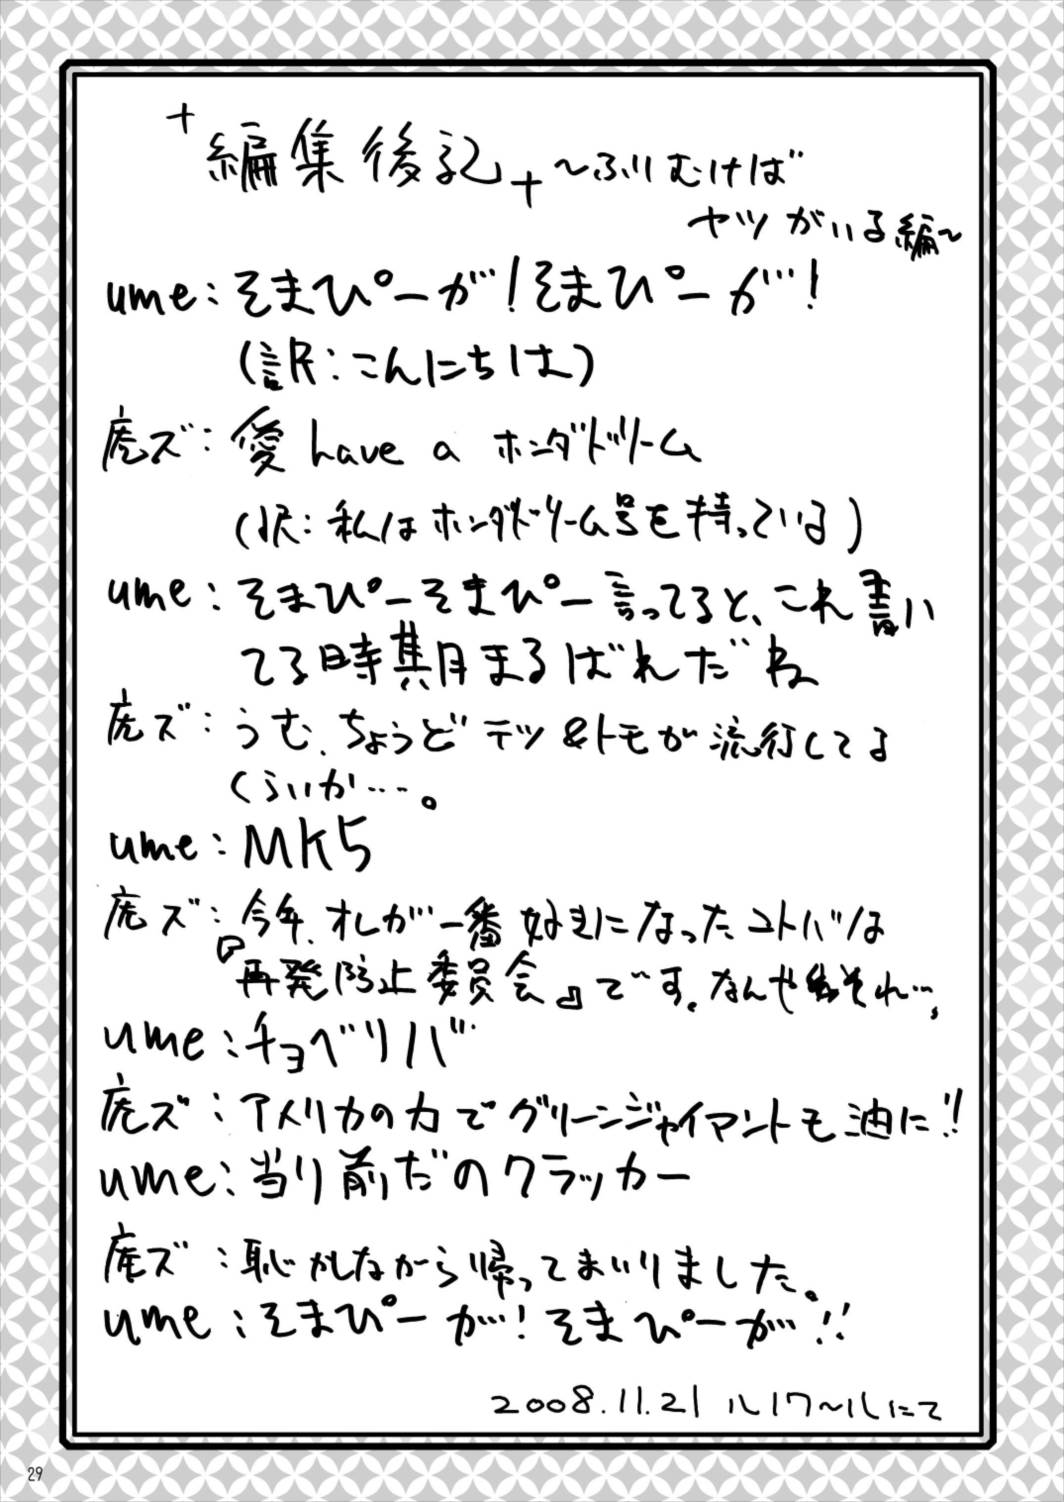 +編集後記+ ~ふりむけば
ヤツがいる編~
ume:そまぴーが!そまぴーが!
(訳:こんにちは)
虎ズ:愛 have a ホンダドリーム
(訳:私はホンダドリーム号を持っている)
ume:そまぴーそまぴー言ってると、これ書い
てる時期まるばれだね
虎ズ:うむ、ちょうどテツ&トモが流行してる
くらいか…。
ume:MK5
虎ズ:今年、オレが一番好きになったコトバは
『再発防止委員会』です。なんやねそれ…。
ume:チョベリバ
虎ズ:アメリカの力でグリーンジャイアントも油に!!
ume:当り前だのクラッカー
虎ズ:恥かしながら帰ってまいりました。
ume:そまぴーが!そまぴーが!!
2008.11.21 ルノワ~ルにて
29